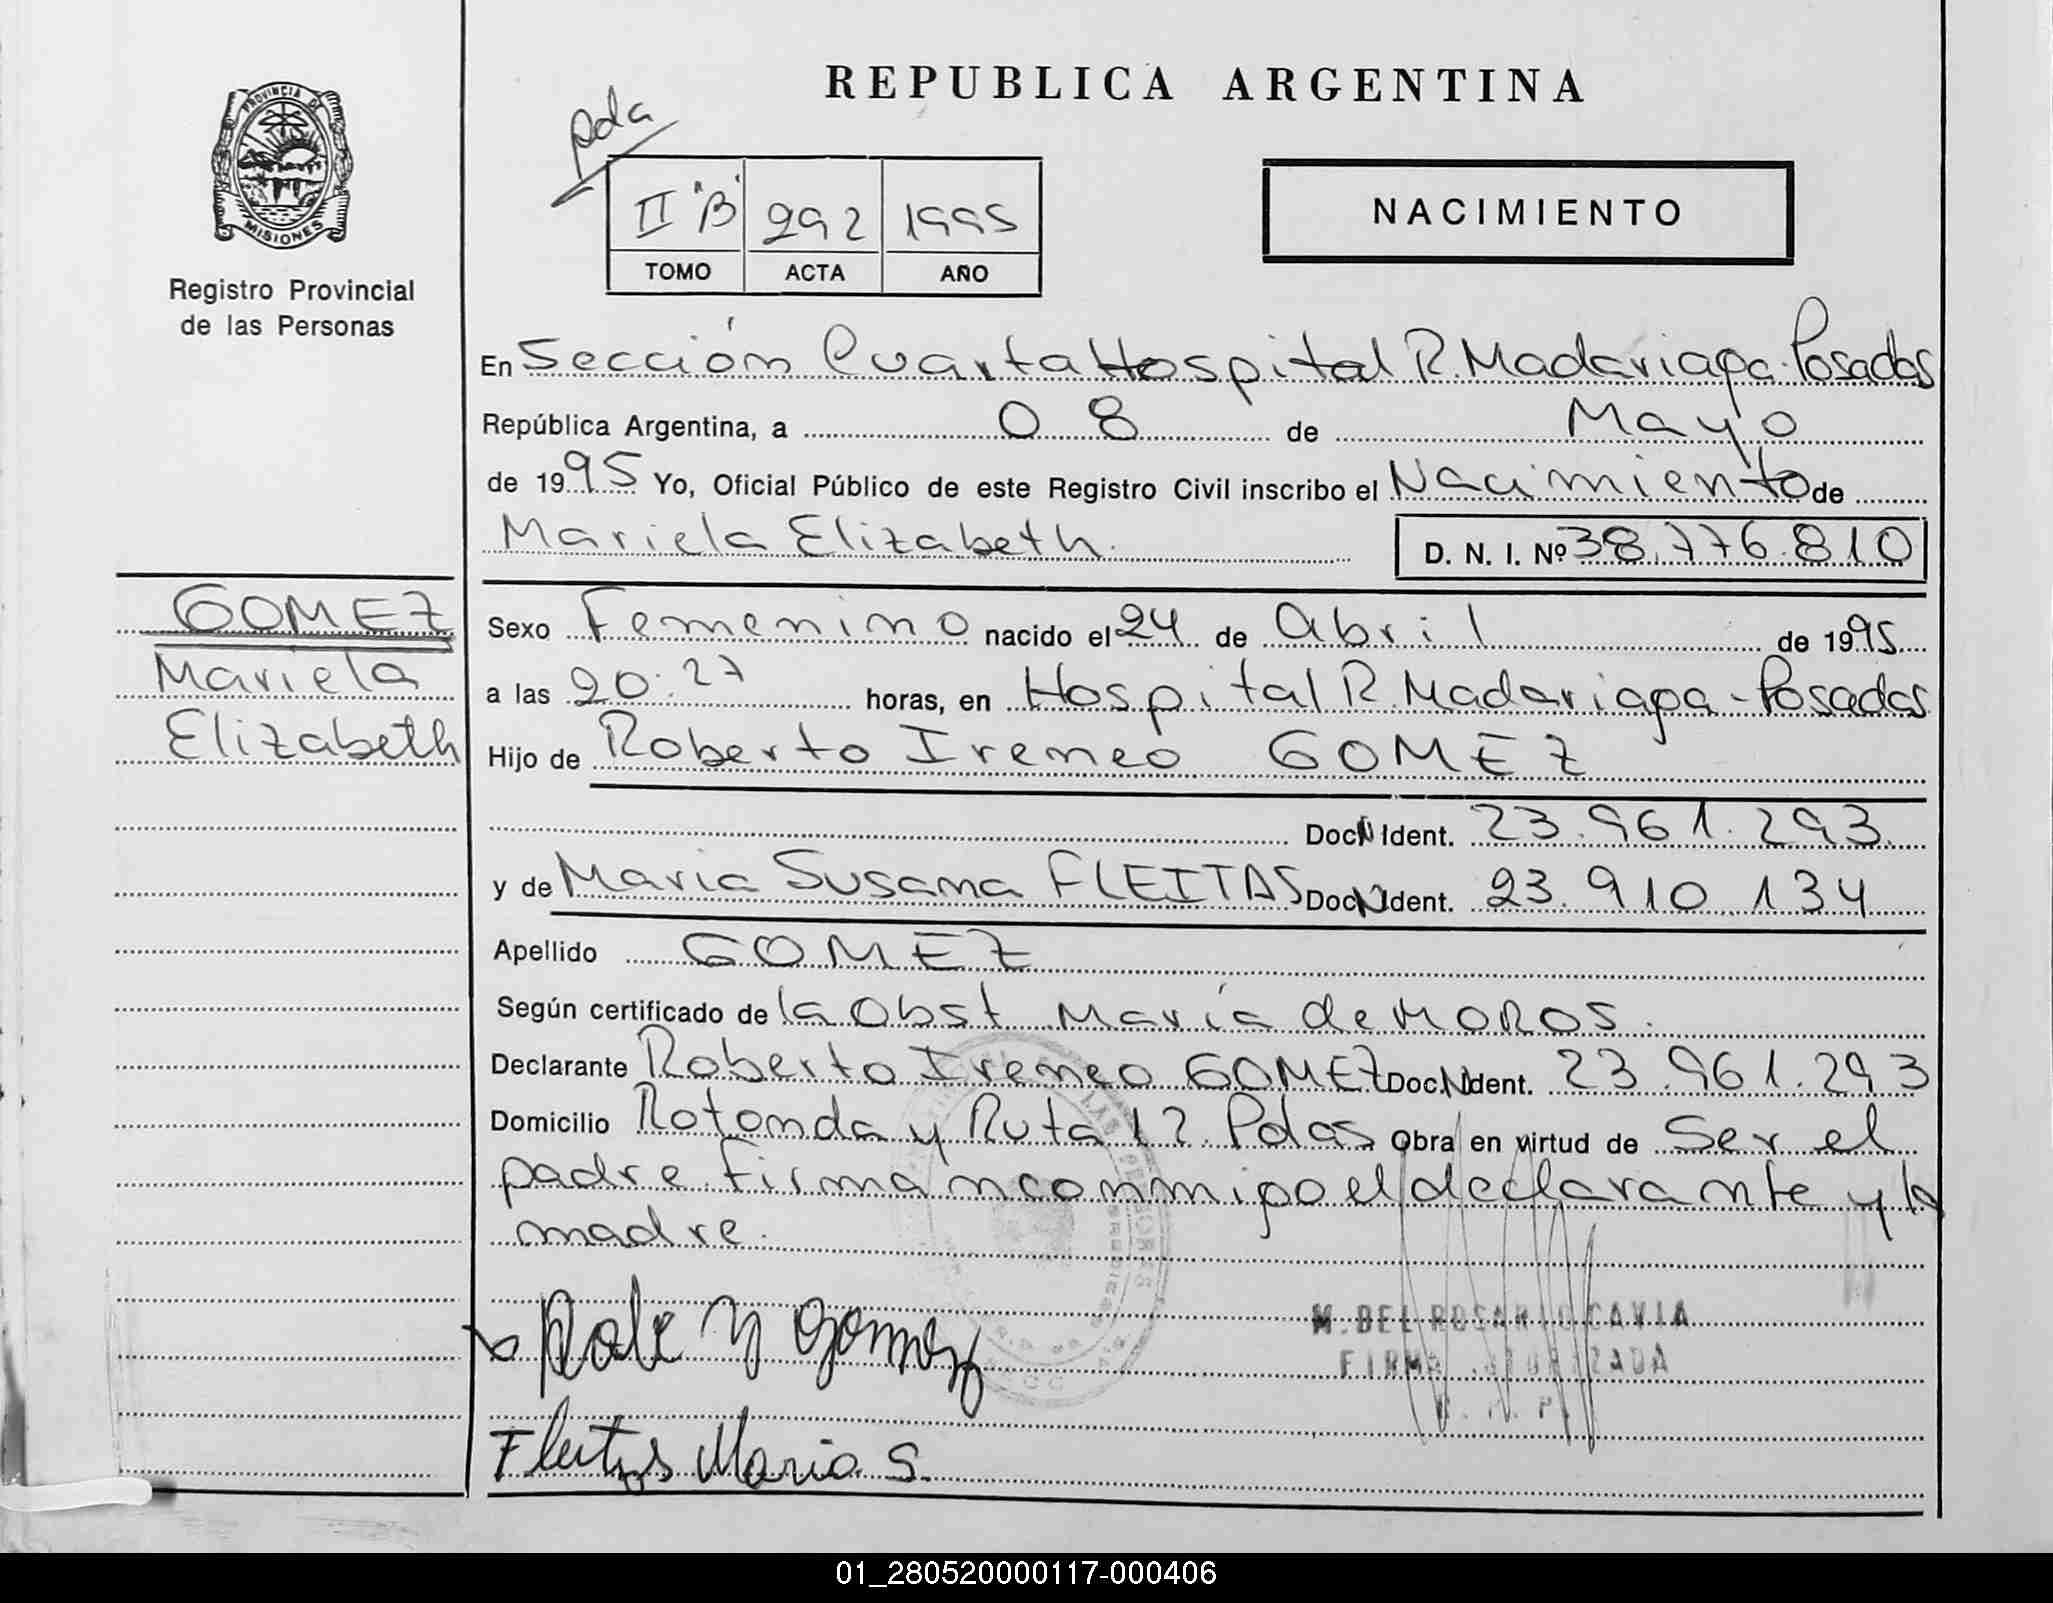 REPUBLICA ARGENTINA
PROVINCIA DE
MISIONES
Registro Provincial
de las Personas
pda
II "B" 292 1995
TOMO ACTA AÑO
NACIMIENTO
En Sección Cuarta Hospital R. Madariaga. Posadas
República Argentina, a 08 de Mayo
de 1995 Yo, Oficial Público de este Registro Civil inscribo el Nacimiento de
Mariela Elizabeth. D. N. I. Nº 38.776.810
GOMEZ
Mariela
Elizabeth
Sexo Femenino nacido el 24 de Abril de 1995
a las 20:27 horas, en Hospital R. Madariaga - Posadas
Hijo de Roberto Ireneo GOMEZ
Doc N Ident. 23.961.293
y de Maria Susana FLEITAS Doc N Ident. 23.910.134
Apellido GOMEZ
Según certificado de la Obst María de MOROS.
Declarante Roberto Ireneo GOMEZ Doc. N Ident. 23.961.293
Domicilio Rotonda y Ruta 12 Pdas Obra en virtud de Ser el
padre firman conmigo el declarante y la
madre.
Gomez
M. DEL ROSARIO CAVIA
FIRMA AUTORIZADA
Fleitas Maria S.
01_280520000117-000406